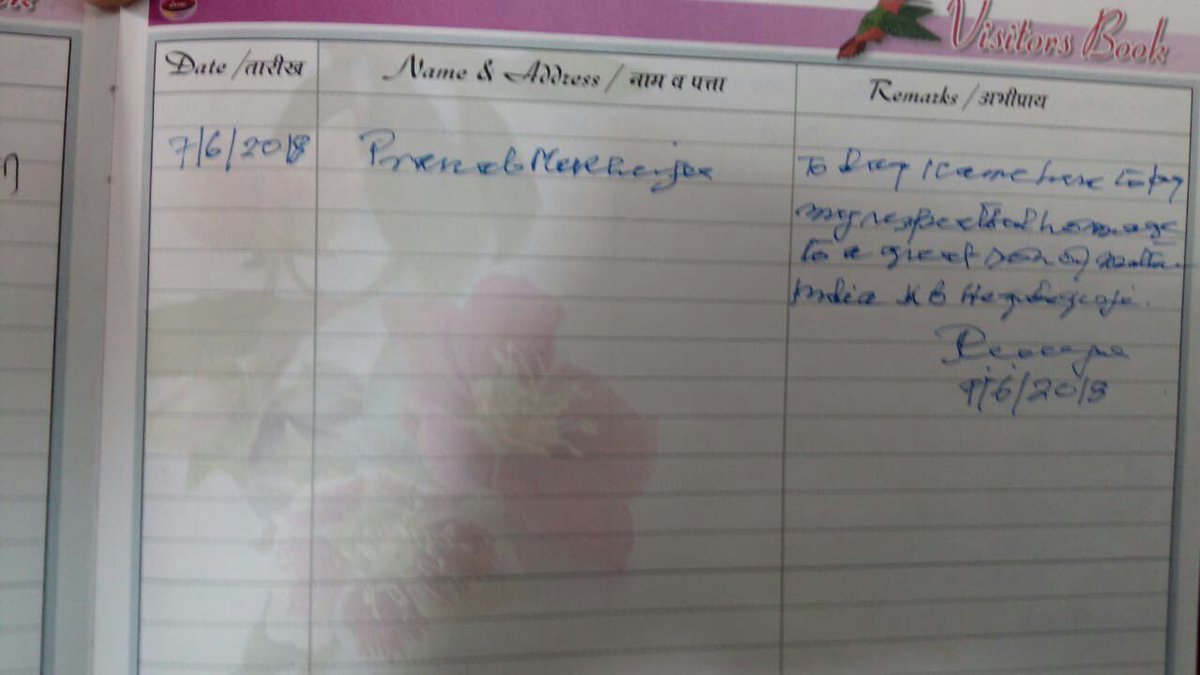 Visitors Book
Date /तारीख
Name & Address / नाम व पत्ता
Remarks /अभीप्राय
7/6/2018
Pranab Mukherjee
To day I came here to pay
my respect and homage
to a great son of Mother
India K B Hegdewarji.
Pranab
7/6/2018